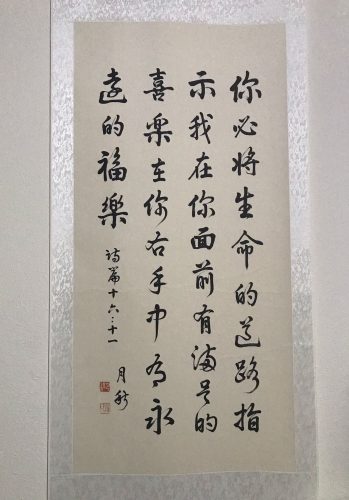 你必将生命的道路指
示我在你面前有滿足的
喜樂在你右手中有永
遠的福樂
詩篇十六:十一
月秋